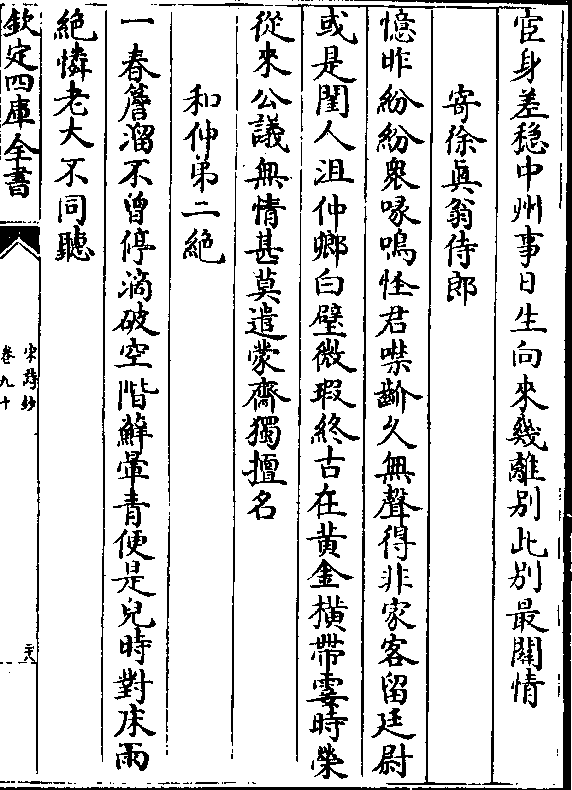 宦身差穩中州事日生向來幾離別此別最關情
寄徐眞翁侍郎
憶昨紛紛衆喙鳴怪君噤齘久無聲得非家客留廷尉
或是閨人沮仲卿白璧微瑕終古在黃金橫帶霎時榮
從來公議無情甚莫遣蒙齋獨擅名
和仲弟二絶
一春簷溜不曾停滴破空階蘚暈青便是兒時對床雨
絶憐老大不同聽
欽定四庫全書
宋詩鈔
卷九十